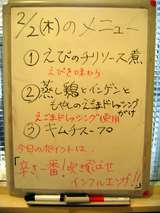 2/2(木)のメニュー
① えびのチリソース煮
えびき味わら
② 蒸し鶏とインゲンと
もやしのえごまドレッシングがけ
えごまドレッシング使用
③ キムチスープ
今日のポイントは、
辛さ一番!吹き飛ばせ
インフルエンザ!!